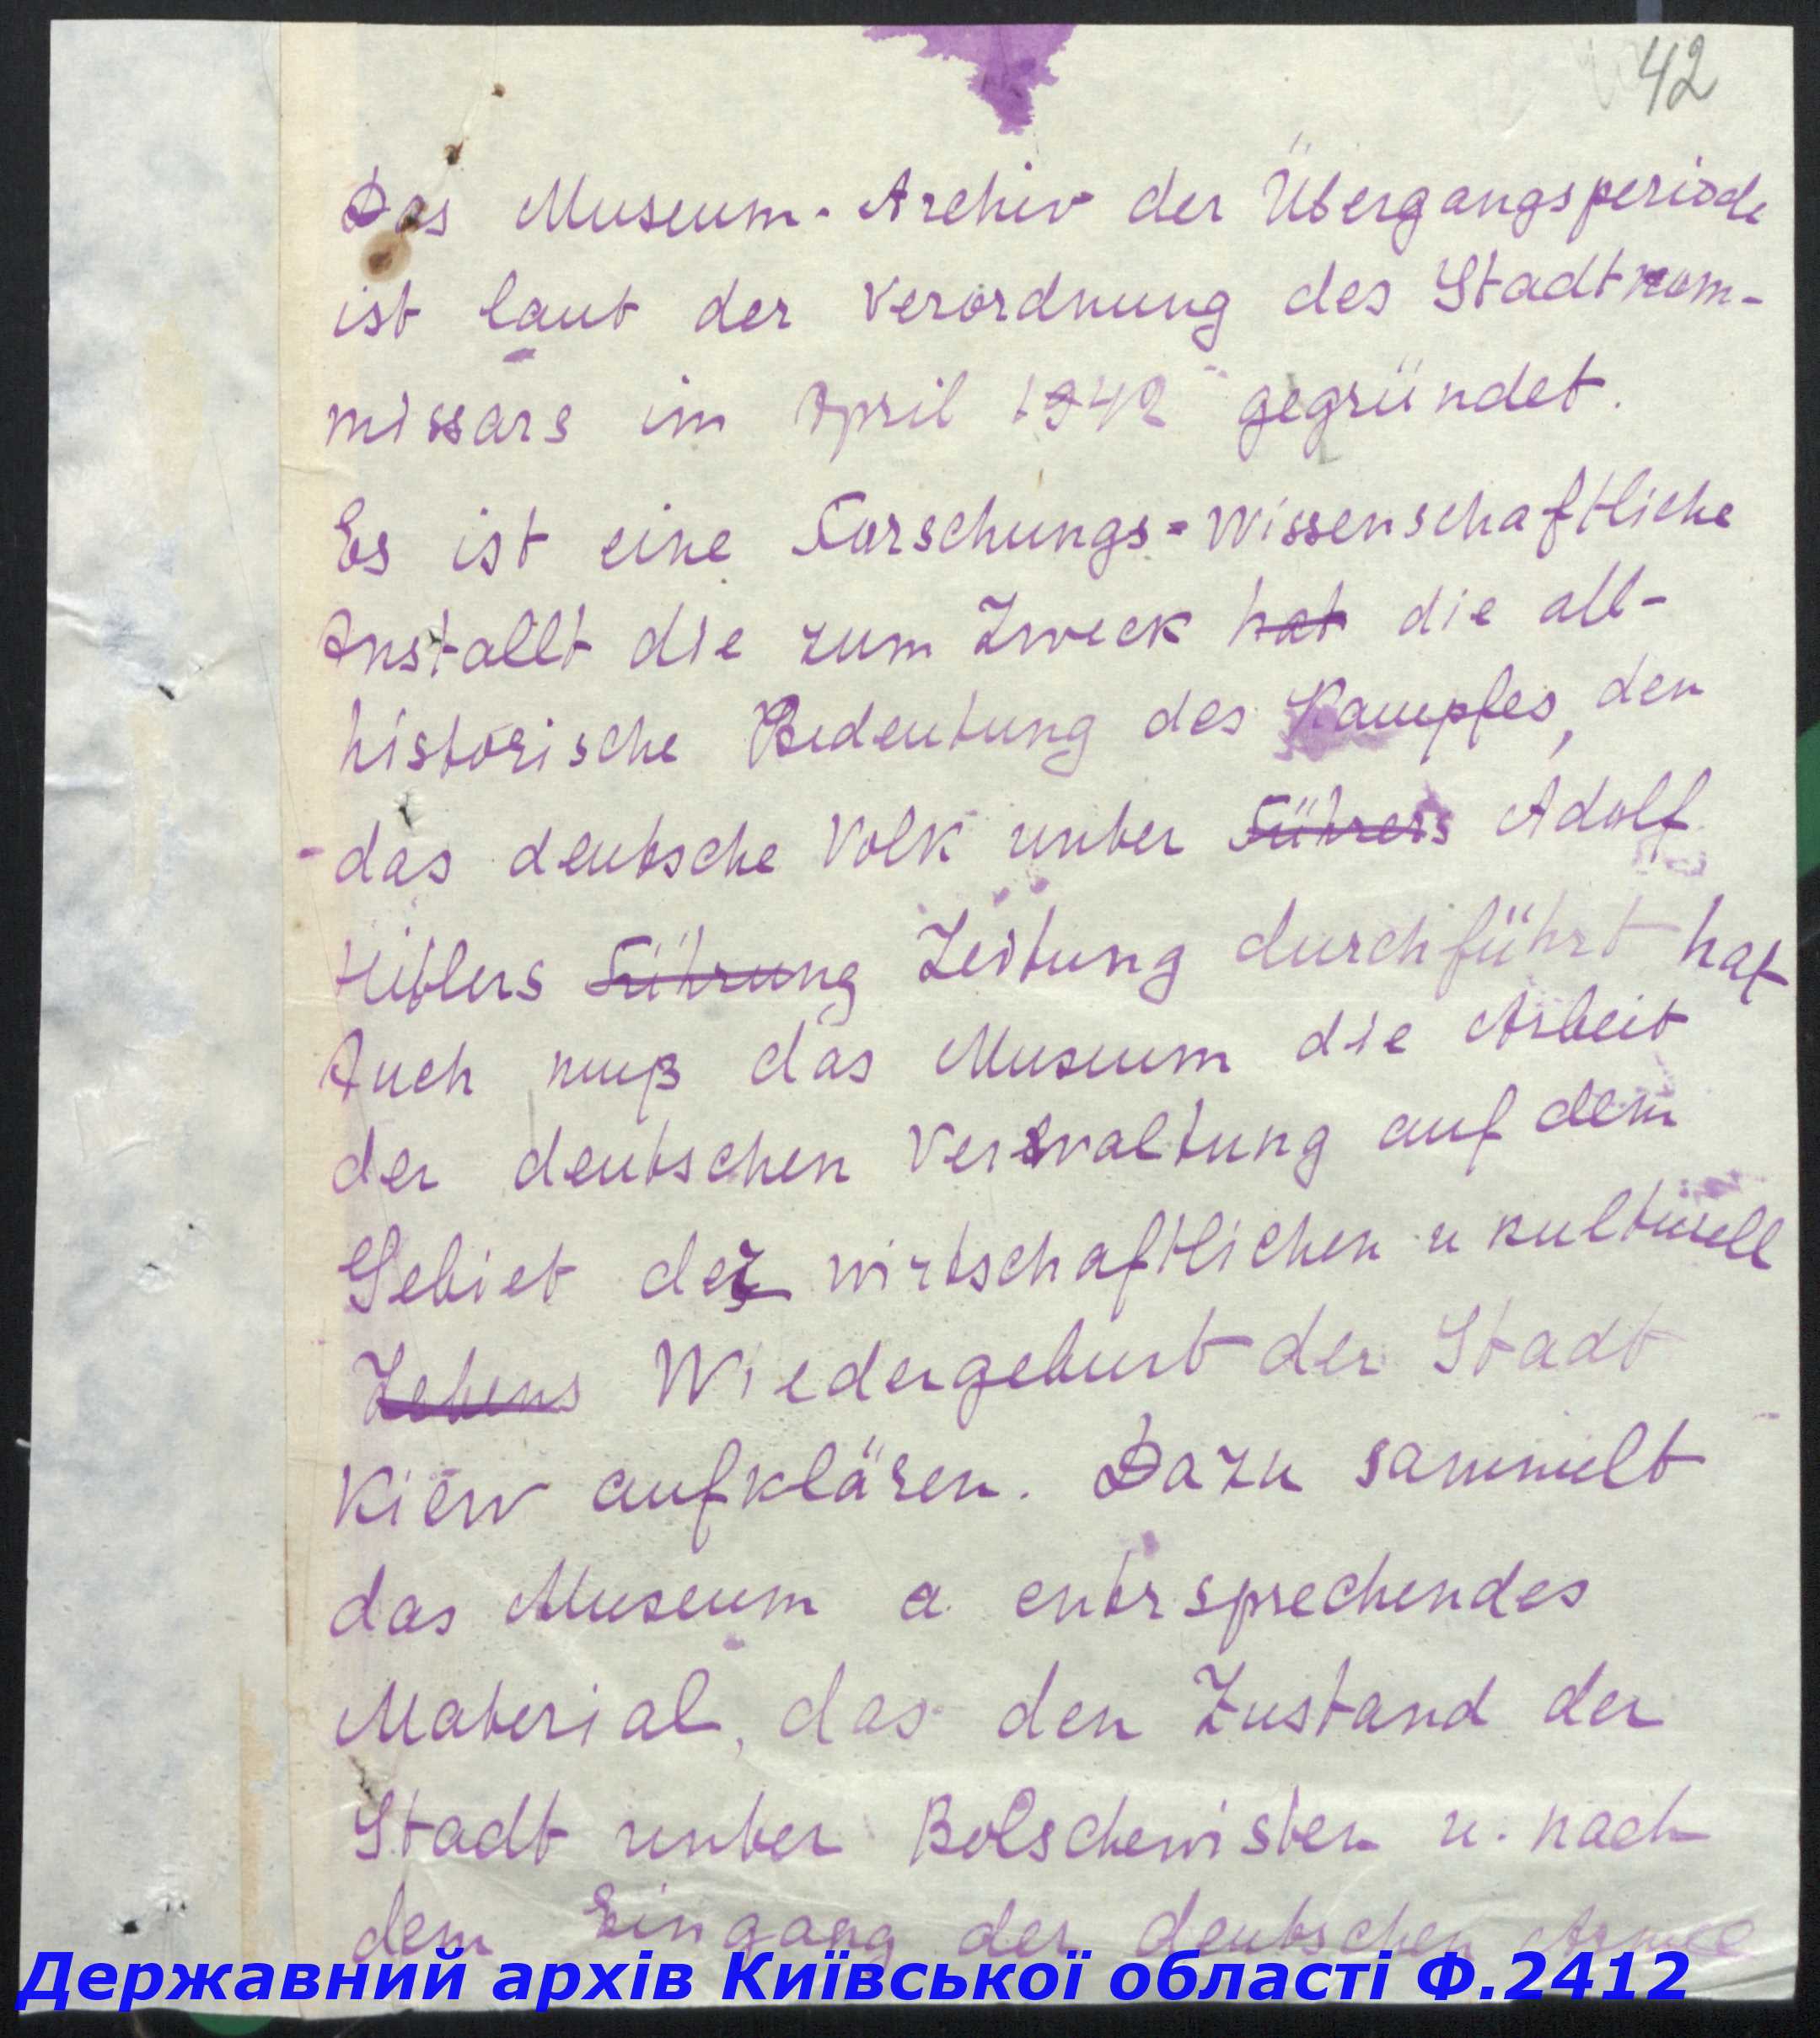 42
Das Museum-Archiv der Übergangsperiode
ist laut der Verordnung des Stadtkom-
missars im April 1942 gegründet.
Es ist eine Forschungs-Wissenschaftliche
Anstallt die zum Zweck hat die all-
historische Bedeutung des Kampfes, den
das deutsche Volk unter Führers Adolf
Hitlers Führung Leitung durchführt hat
Auch muß das Museum die Arbeit
der deutschen Verwaltung auf dem
Gebiet der wirtschaftlichen u kulturell
Lebens Wiedergeburt der Stadt
Kiew aufklären. Dazu sammelt
das Museum a entsprechendes
Material, das den Zustand der
Stadt unter Bolschewisten u. nach
dem Eingang der deutschen Armee
Державний архів Київської області Ф.2412